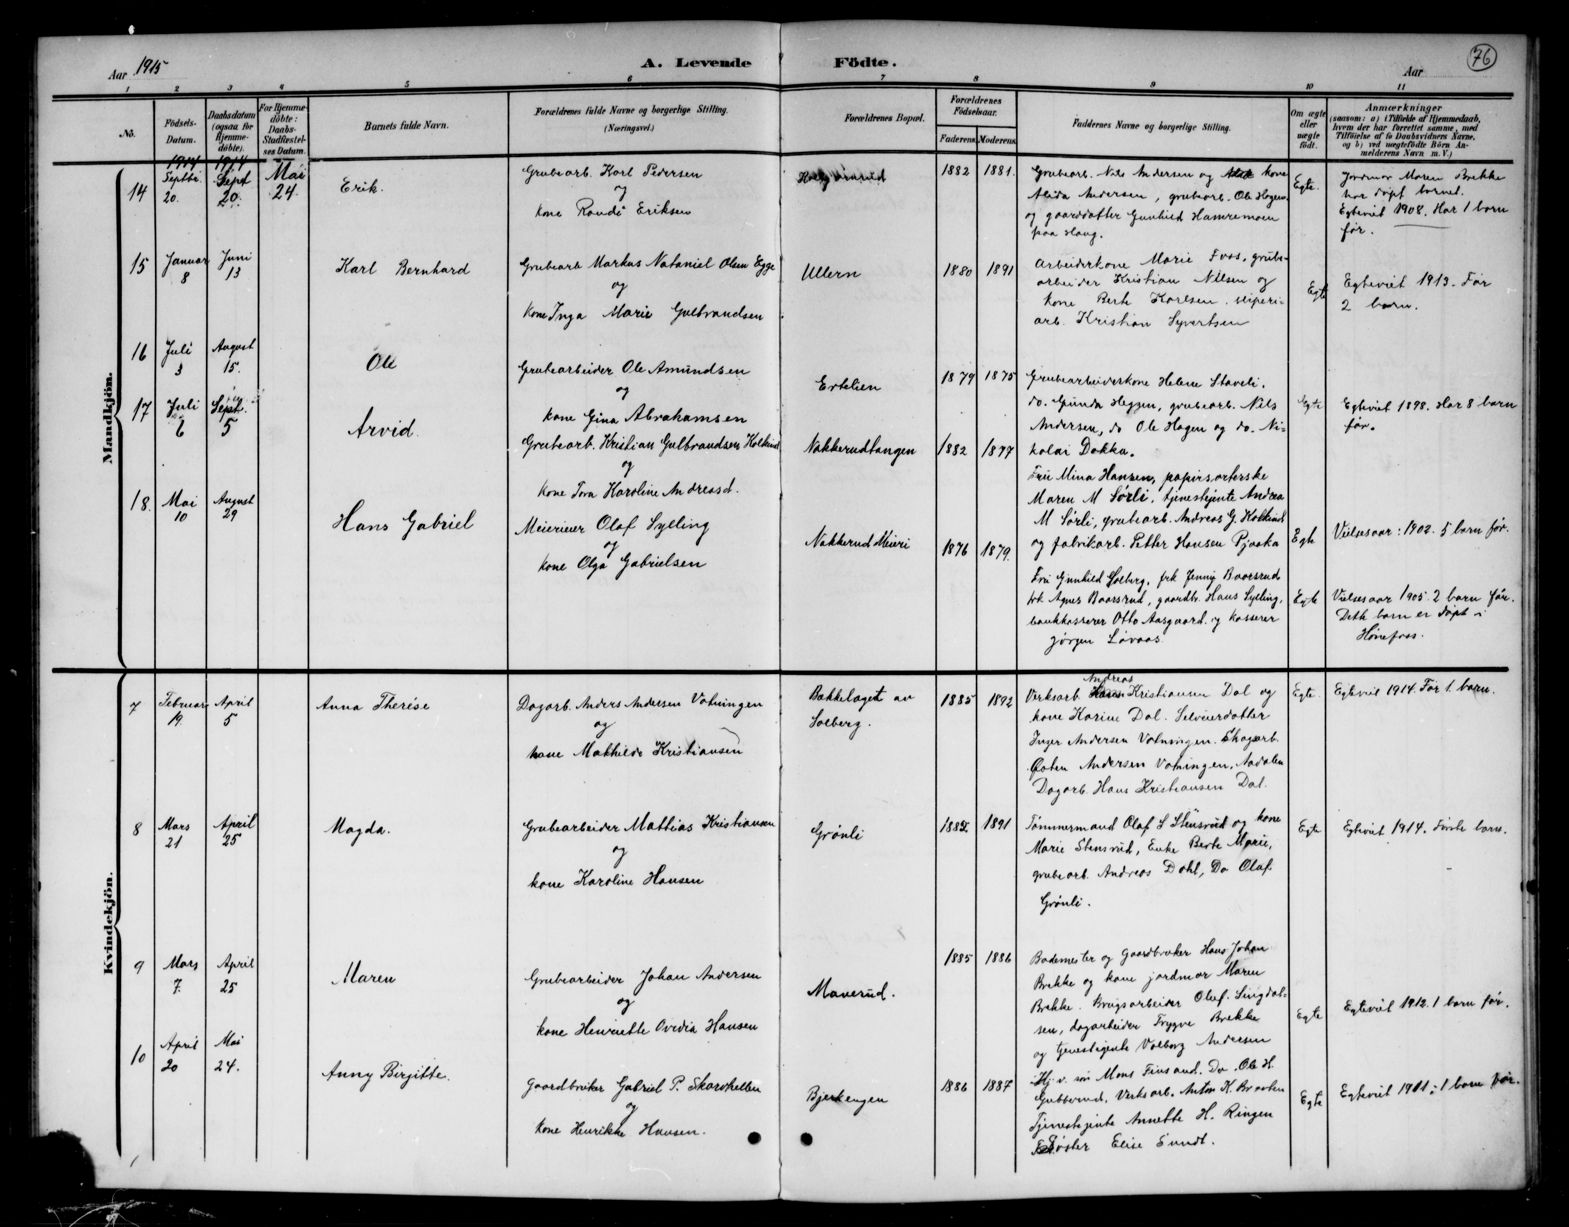 Aar 1915
A. Levende Fødte.
Aar
76
1 2 3 4 5 6 7 8 9 10 11
No.
Fødsels-
Datum.
Daabsdatum
(ogsaa for
Hjemme-
døbte).
For Hjemme-
døbte:
Daabs-
Stadfæstel-
ses Datum.
Barnets fulde Navn.
Forældrenes fulde Navne og borgerlige Stilling.
(Næringsvei.)
Forældrenes Bopæl.
Forældrenes
Fødselsaar.
Faderens. Moderens.
Faddernes Navne og borgerlige Stilling.
Om ægte
eller
uægte
født.
Anmærkninger
(saasom: a) i Tilfælde af Hjemmedaab,
hvem der har forrettet samme, med
Tilføielse af to Daabsvidners Navne,
og b) ved uægtefødte Børn An-
melderens Navn m. V.)
Mandkjøn.
14
1914
Septbr.
20.
1914
Sept
20.
Mai
24.
Erik.
Grubearb. Karl Pedersen
og
kone Randi Eriksen
1882 1881.
Grubearb. Nils Andersen og kone
Alida Andersen, grubearb. Ole Hagen
og gaarddatter Gunhild Hamremoen
paa Haug.
Egte.
Jordmor Maren Brekke
har døpt barnet.
Egteviet 1908. Har 1 barn
før.
15
Januar
8
Juni
13
Karl Bernhard
Grubearb Markus Nataniel Olsen Egge
og
kone Inga Marie Gulbrandsen
Ullern
1880 1891
Arbeiderkone Marie Foss, grube-
arbeider Kristian Nilsen og
kone Berte Karlsen, sliperi-
arb. Kristian Syvertsen
Egte
Egteviet 1913. Før
2 barn.
16
Juli
3
August
15.
Ole
Grubearbeider Ole Amundsen
og
kone Gina Abrahamsen
Ertelien
1879 1875
Grubearbeiderkone Helene Staveli.
do. Gunda Heggen, grubearb. Nils
Andersen, do Ole Hagen og do. Ni-
kolai Dokka.
Egte
Egteviet 1898. Har 8 barn
før.
17
Juli
6
Sept.
5
Arvid.
Grubearb. Kristian Gulbrandsen Holelind
og
kone Tora Karoline Andreasd.
Nakkerudtangen
1882 1877
Fru Mina Hansen, papirsorterske
Maren M Sørli, tjenestejente Andrea
M Sørli, grubearb. Andreas G. Holelind
og fabrikarb. Petter Hansen Pjaaka
Egte
Vielsesaar: 1902. 5 barn før.
18.
Mai
10
August
29
Hans Gabriel
Meierieier Olaf Sylling
og
kone Olga Gabrielsen
Nakkerud Meieri
1876 1879.
Fru Gunhild Solberg, frk Jenny Baarsrud
frk Agnes Baarsrud, gaardbr. Hans Sylling,
bankkasserer Otto Aasgaard og kasserer
Jørgen Løvaas.
Egte
Vielsesaar 1905. 2 barn før.
Dette barn er døpt i
Hønefoss.
Kvindekjøn.
7
Februar
19
April
5
Anna Therése
Dagarb. Anders Andersen Vatningen
og
kone Mathilde Kristiansen
Bakkelaget av
Solberg.
1885 1892
Andreas
Verksarb. Hans Kristiansen Dal og
kone Karine Dal. Selveierdatter
Inger Andersen Vatningen. Skogarb.
Andersen Vatningen, Aadalen
Dagarb. Hans Kristiansen Dal.
Egte.
Egteviet 1914. Før 1. barn.
8
Mars
21
April
25
Magda.
Grubearbeider Mathias Kristiansen
og
kone Karoline Hansen
Grønli
1885 1891
Tømmermand Olaf S Stensrud og kone
Marie Stensrud, Enke Berte Marie,
grubearb. Andreas Dahl, Do Olaf
Grønli.
Egte
Egteviet 1914. Første barn.
9
Mars
7.
April
25
Maren
Grubearbeider Johan Andersen
og
kone Henriette Ovidia Hansen
Maverud.
1885 1886
Bademester og Gaardbruker Hans Johan
Brekke og kone jordmor Maren
Brekke. Brugsarbeider Oluf Singdal-
sen, dagarbeider Trygve Brekke
og tjenestejente Valborg Andersen
Egte
Egteviet 1912. 1 barn før.
10
April
20
Mai
24.
Anny Birgitte.
Gaardbruker Gabriel P. Skarshellen
og
kone Henrikke Hansen.
Bjerkengen
1886 1887
Hj.v. søn Mons Finsand. Do. Ole H.
Gubberud, Verksarb. Anton K. Braaten
Tjenestejente Annette H. Ringen
søster Elise Sundt.
Egte
Egteviet 1911: 1 barn før.